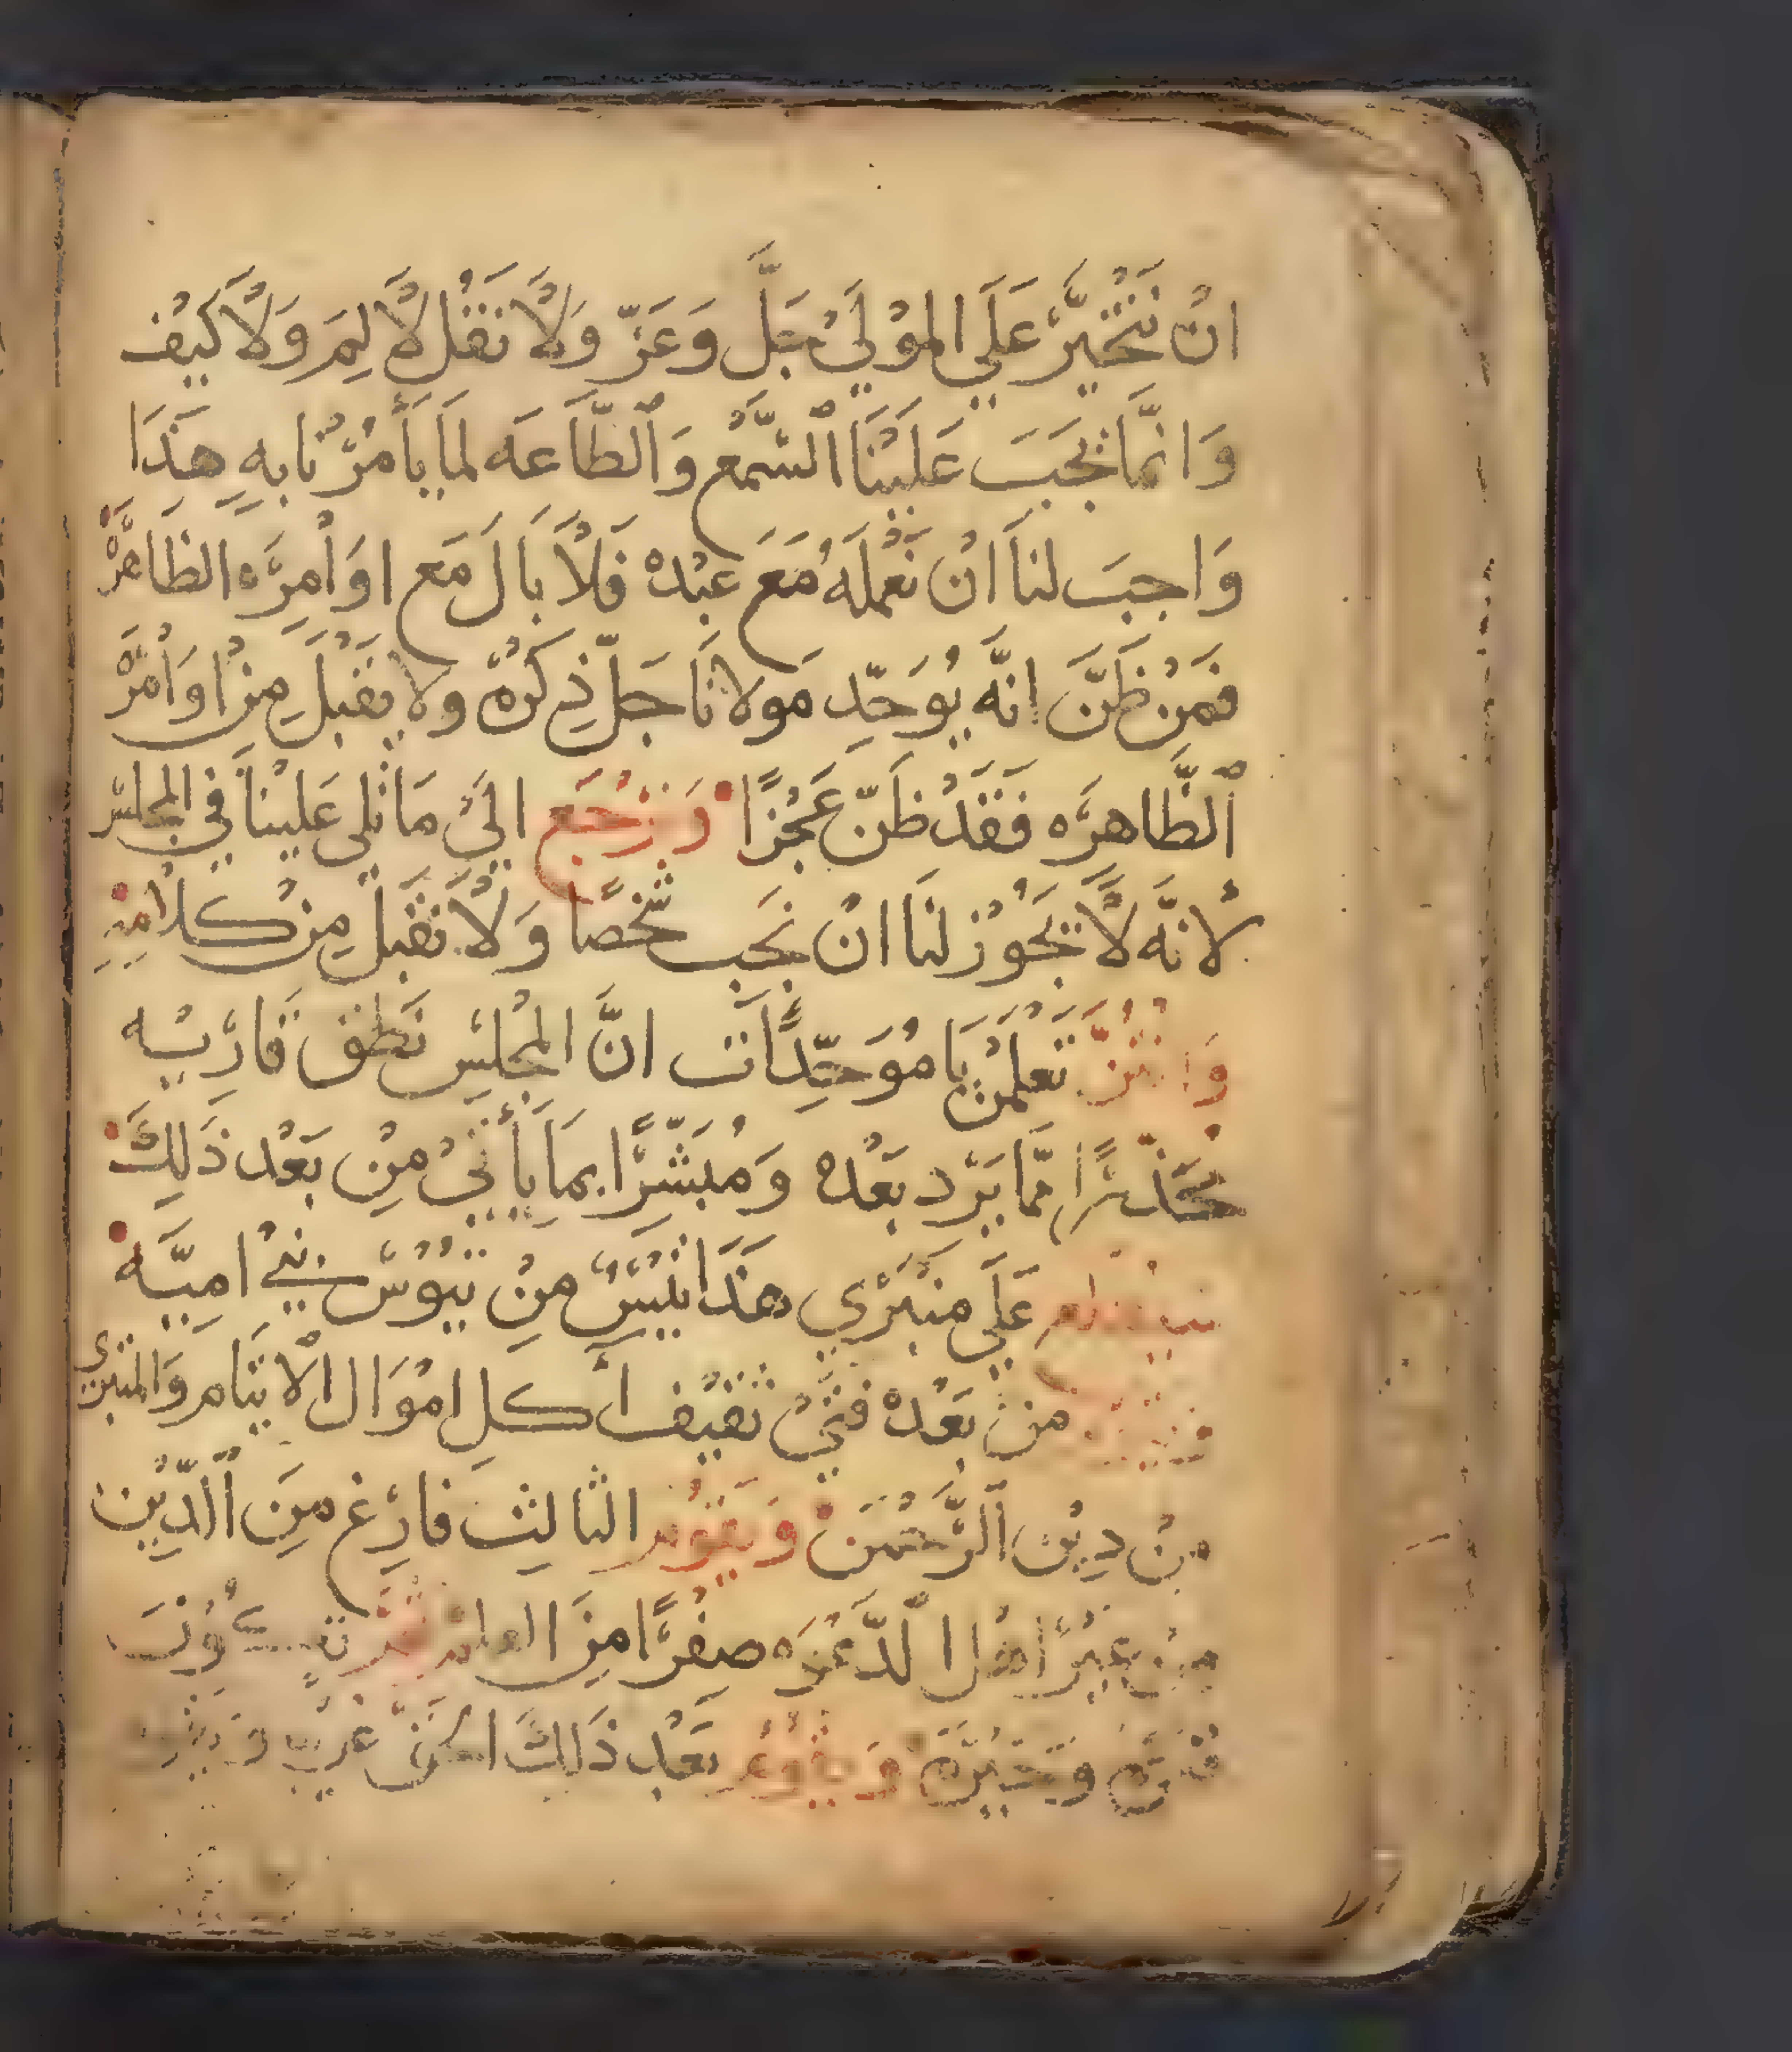 انْ نَتْخَيَّرُ عَلَي المَوْلَيْ جَلَّ وَعَزّ وَلَا نَقُل لَا لِمَ وَلَا كَيْف
وَانَّمَا يَجَبَ عَلَيْنَا ٱلسَّمْع وَٱلطَّاعَه لمَا يَأمُرْنَا بهِ هَذَا
وَاجبَ لنَا انْ نَعْمَلَهُ مَعَ عبْدهْ فَلَا بَالَ مَع اوَامِرَه الظَاهرَهْ
فَمَنْ ظَنَّ انَّه يُوَحّدِ مَولَانَا جَلّ ذِكرُهُ ولا يَقْبَلَ مِنْ اوَامْرَهْ
ٱلظَّاهرَه فَقَدْ ظَنّ عَجْزًا وَنَرْجَع اليَ مَا تلي عَلينَا في المجَلسْ
لأنَّه لَا يَجُوْز لنَا انْ نَجَب شَخصًا وَلَا نَقْبَلْ مِنْ كلَامِهِ
وَانْتُنَّ تَعْلَمْنَ يَا مُوَحِّدَات انَّ المجْلسْ نَطَق فَارسْيه
محَذّرًا ممَّا يَرَد بَعْدهْ وَمُبَشّرًا بمَا يَأتيْ مِنْ بَعْد ذَلِكَ
سَيَقُوم عَلَي منبَرْي هَذَا تَيْسٌ مِنْ تيُوْسْ بَنيْ اميَّه
وَيَتْلُوه منْ بَعْدهْ فتَيْ ثقيْف أكل امْوَال الْايتَام وَالمتبَرْي
منْ ديْن ٱلرَّحْمَنْ وَيَقُوْم الثالثَ فَارغ مِنَ ٱلدّيْن
مِنْ غيْرْ اهْل الدَّعْوَه صفْرًا مِنَ العلم
بَعْد ذَلكَ